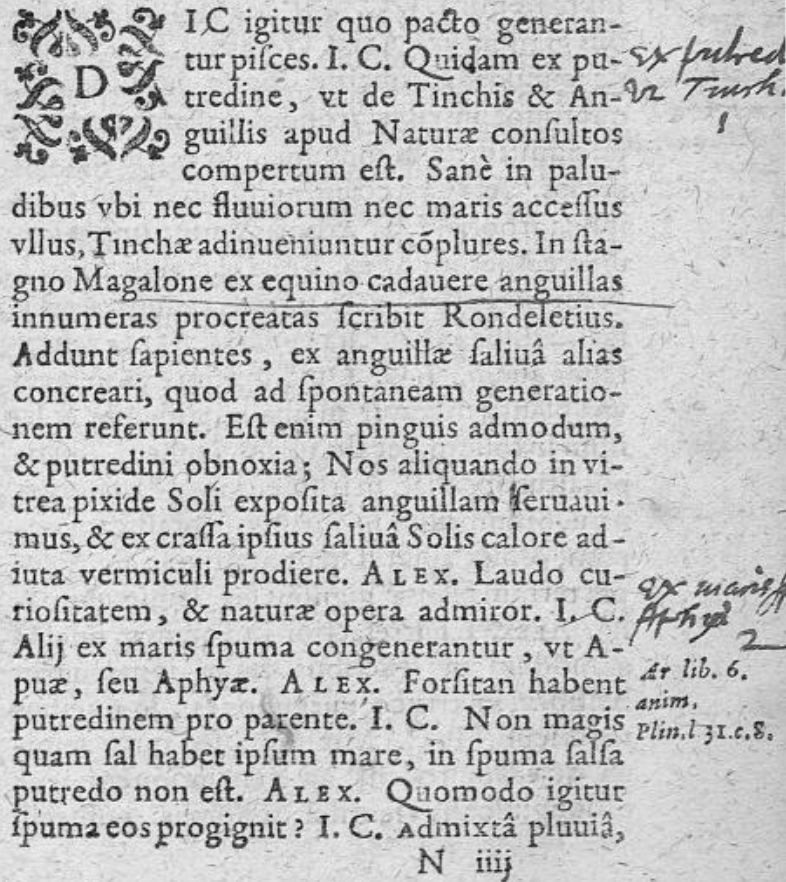 DIC igitur quo pacto generan-
tur piſces. I. C. Quidam ex pu-
tredine, vt de Tinchis & An-
guillis apud Naturæ conſultos
compertum eſt. Sanè in palu-
dibus vbi nec fluuiorum nec maris acceſſus
vllus, Tinchæ adinueniuntur cõplures. In ſta-
gno Magalone ex equino cadauere anguillas
innumeras procreatas ſcribit Rondeletius.
Addunt ſapientes, ex anguillæ ſaliuâ alias
concreari, quod ad ſpontaneam generatio-
nem referunt. Eſt enim pinguis admodum,
& putredini obnoxia; Nos aliquando in vi-
trea pixide Soli expoſita anguillam ſeruaui-
mus, & ex craſſa ipſius ſaliuâ Solis calore ad-
iuta vermiculi prodiere. ALEX. Laudo cu-
rioſitatem, & naturæ opera admiror. I. C.
Alij ex maris ſpuma congenerantur, vt A-
puæ, ſeu Aphyæ. ALEX. Forſitan habent
putredinem pro parente. I. C. Non magis
quam ſal habet ipſum mare, in ſpuma ſalſa
putredo non eſt. ALEX. Quomodo igitur
ſpuma eos progignit? I. C. Admixtâ pluuiâ,
N iiij
ex putred
vt Tinch.
1
ex maris
2
Ar lib. 6.
anim.
Plin. l 31. c. 8.